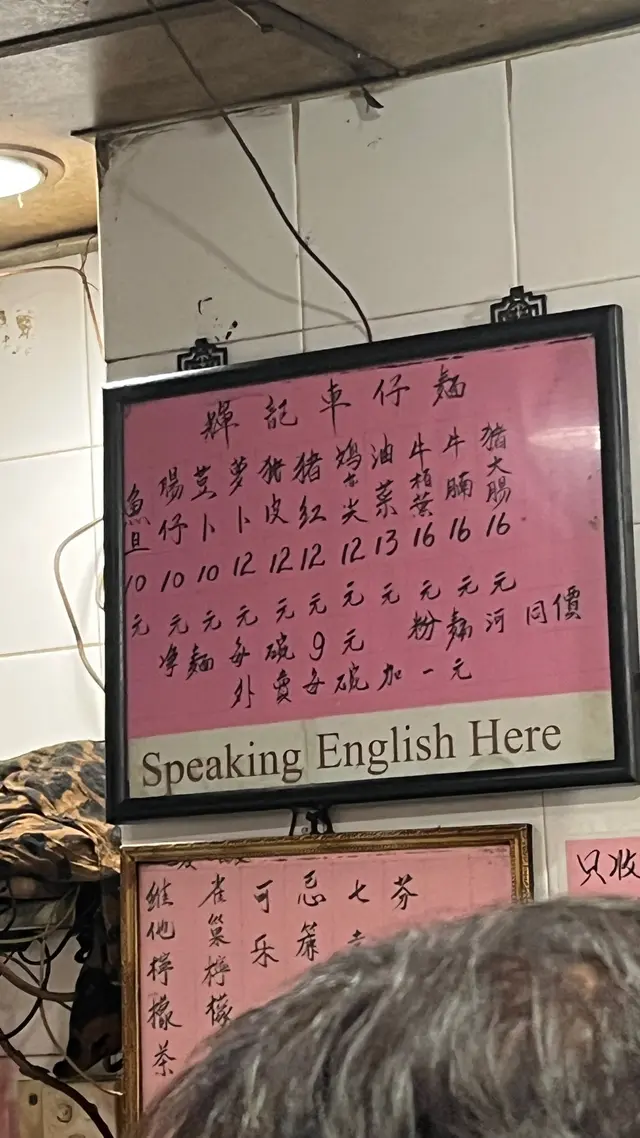 輝記車仔麵
魚旦10元
腸仔10元
荳卜10元
萝卜12元
猪皮12元
猪红12元
尖12元
油菜13元
牛栢葉16元
牛腩16元
猪大腸16元
净麵每碗9元 粉麵河同價
外賣每碗加一元
Speaking English Here
維他檸檬茶
雀巢檸檬
可乐
忌簾
七
芬
只收